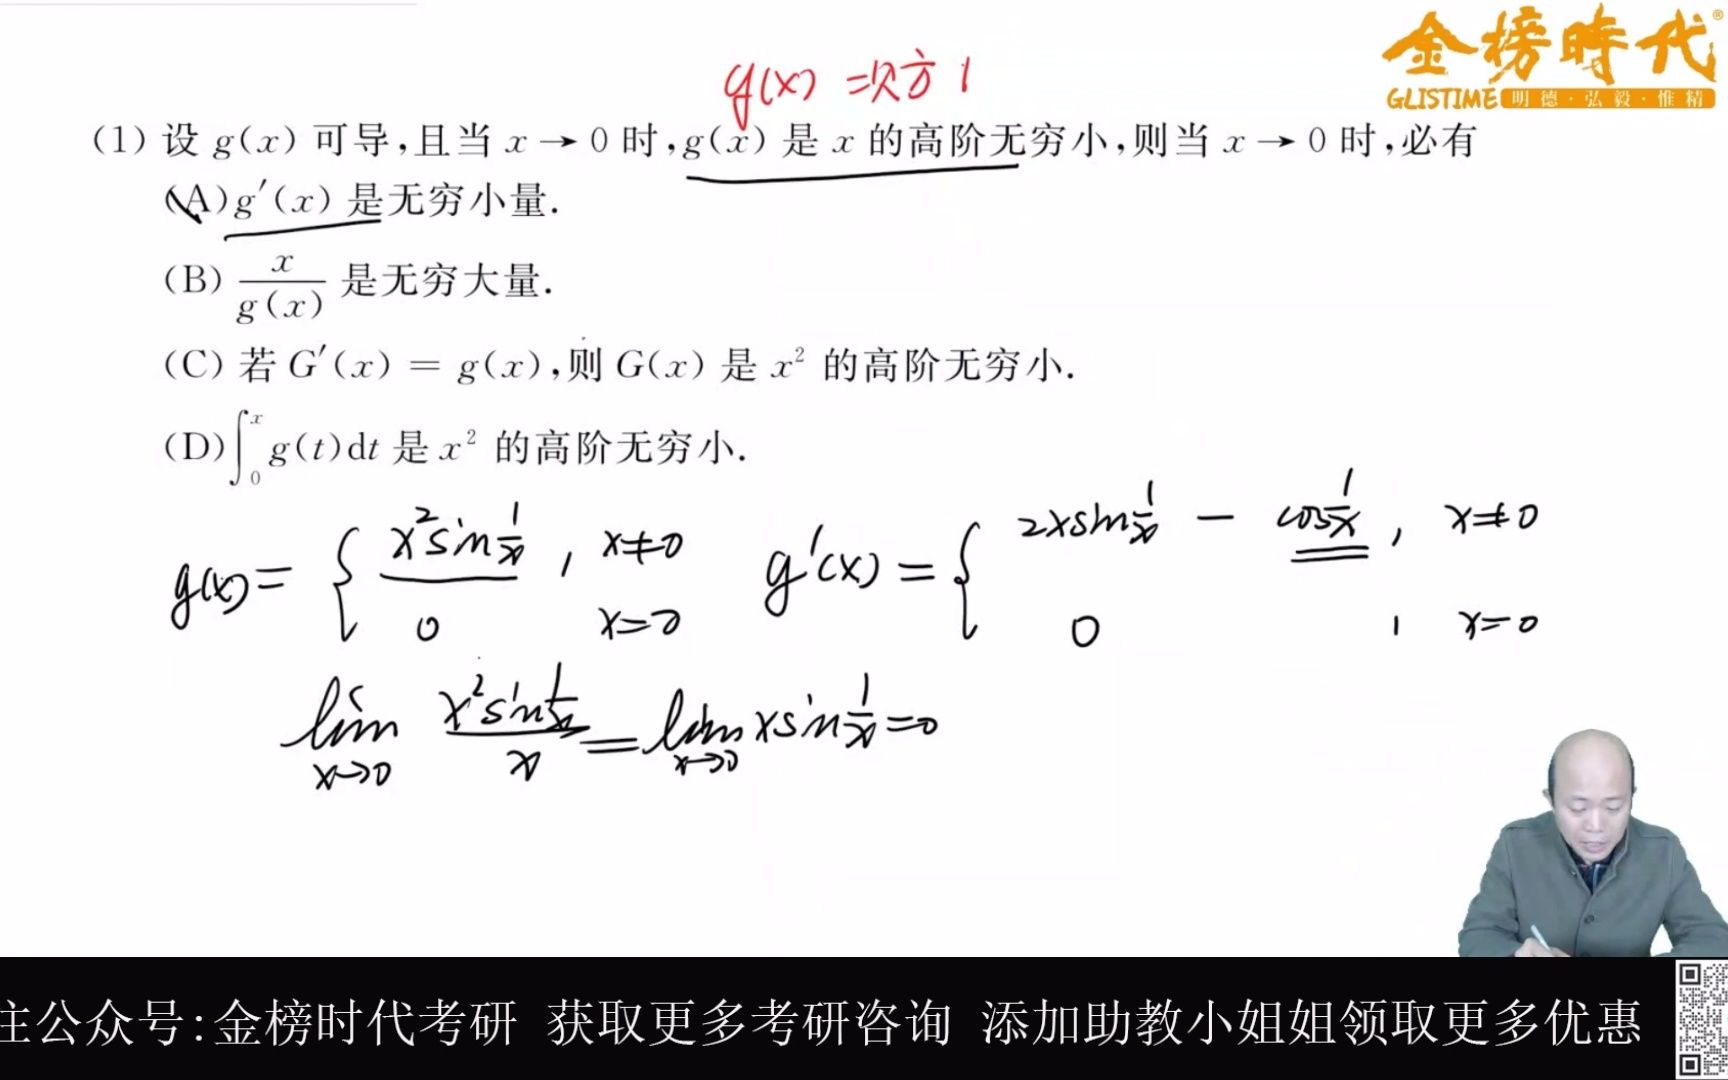 金榜時代®
GLISTIME 明德·弘毅·惟精
g(x) 二次方 1
(1) 设 g(x) 可导,且当 x → 0 时,g(x) 是 x 的高阶无穷小,则当 x → 0 时,必有
(A) g′(x) 是无穷小量.
(B) x/g(x) 是无穷大量.
(C) 若 G′(x) = g(x),则 G(x) 是 x² 的高阶无穷小.
(D) ∫₀ˣ g(t)dt 是 x² 的高阶无穷小.
g(x) = { x² sin 1/x , x≠0 g′(x) = { 2x sin 1/x − cos 1/x , x≠0
0 x=0 0 , x=0
lim x→0 x² sin 1/x / x = lim x→0 x sin 1/x = 0
注公众号:金榜时代考研 获取更多考研咨询 添加助教小姐姐领取更多优惠